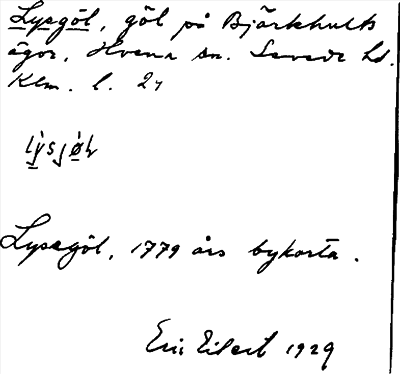 Lysgöl, göl på Björkhults
ägor, Hvena sn. Sevede hd.
Klm. l. 24
lỳsjø̀l
Lysegöl, 1779 års bykarta.
Eric Eilert 1929